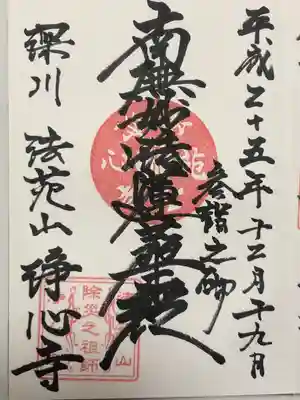 平成二十五年十二月十九日
参詣之砌
南無妙法蓮華経
深川 法苑山 浄心寺
除災之祖師